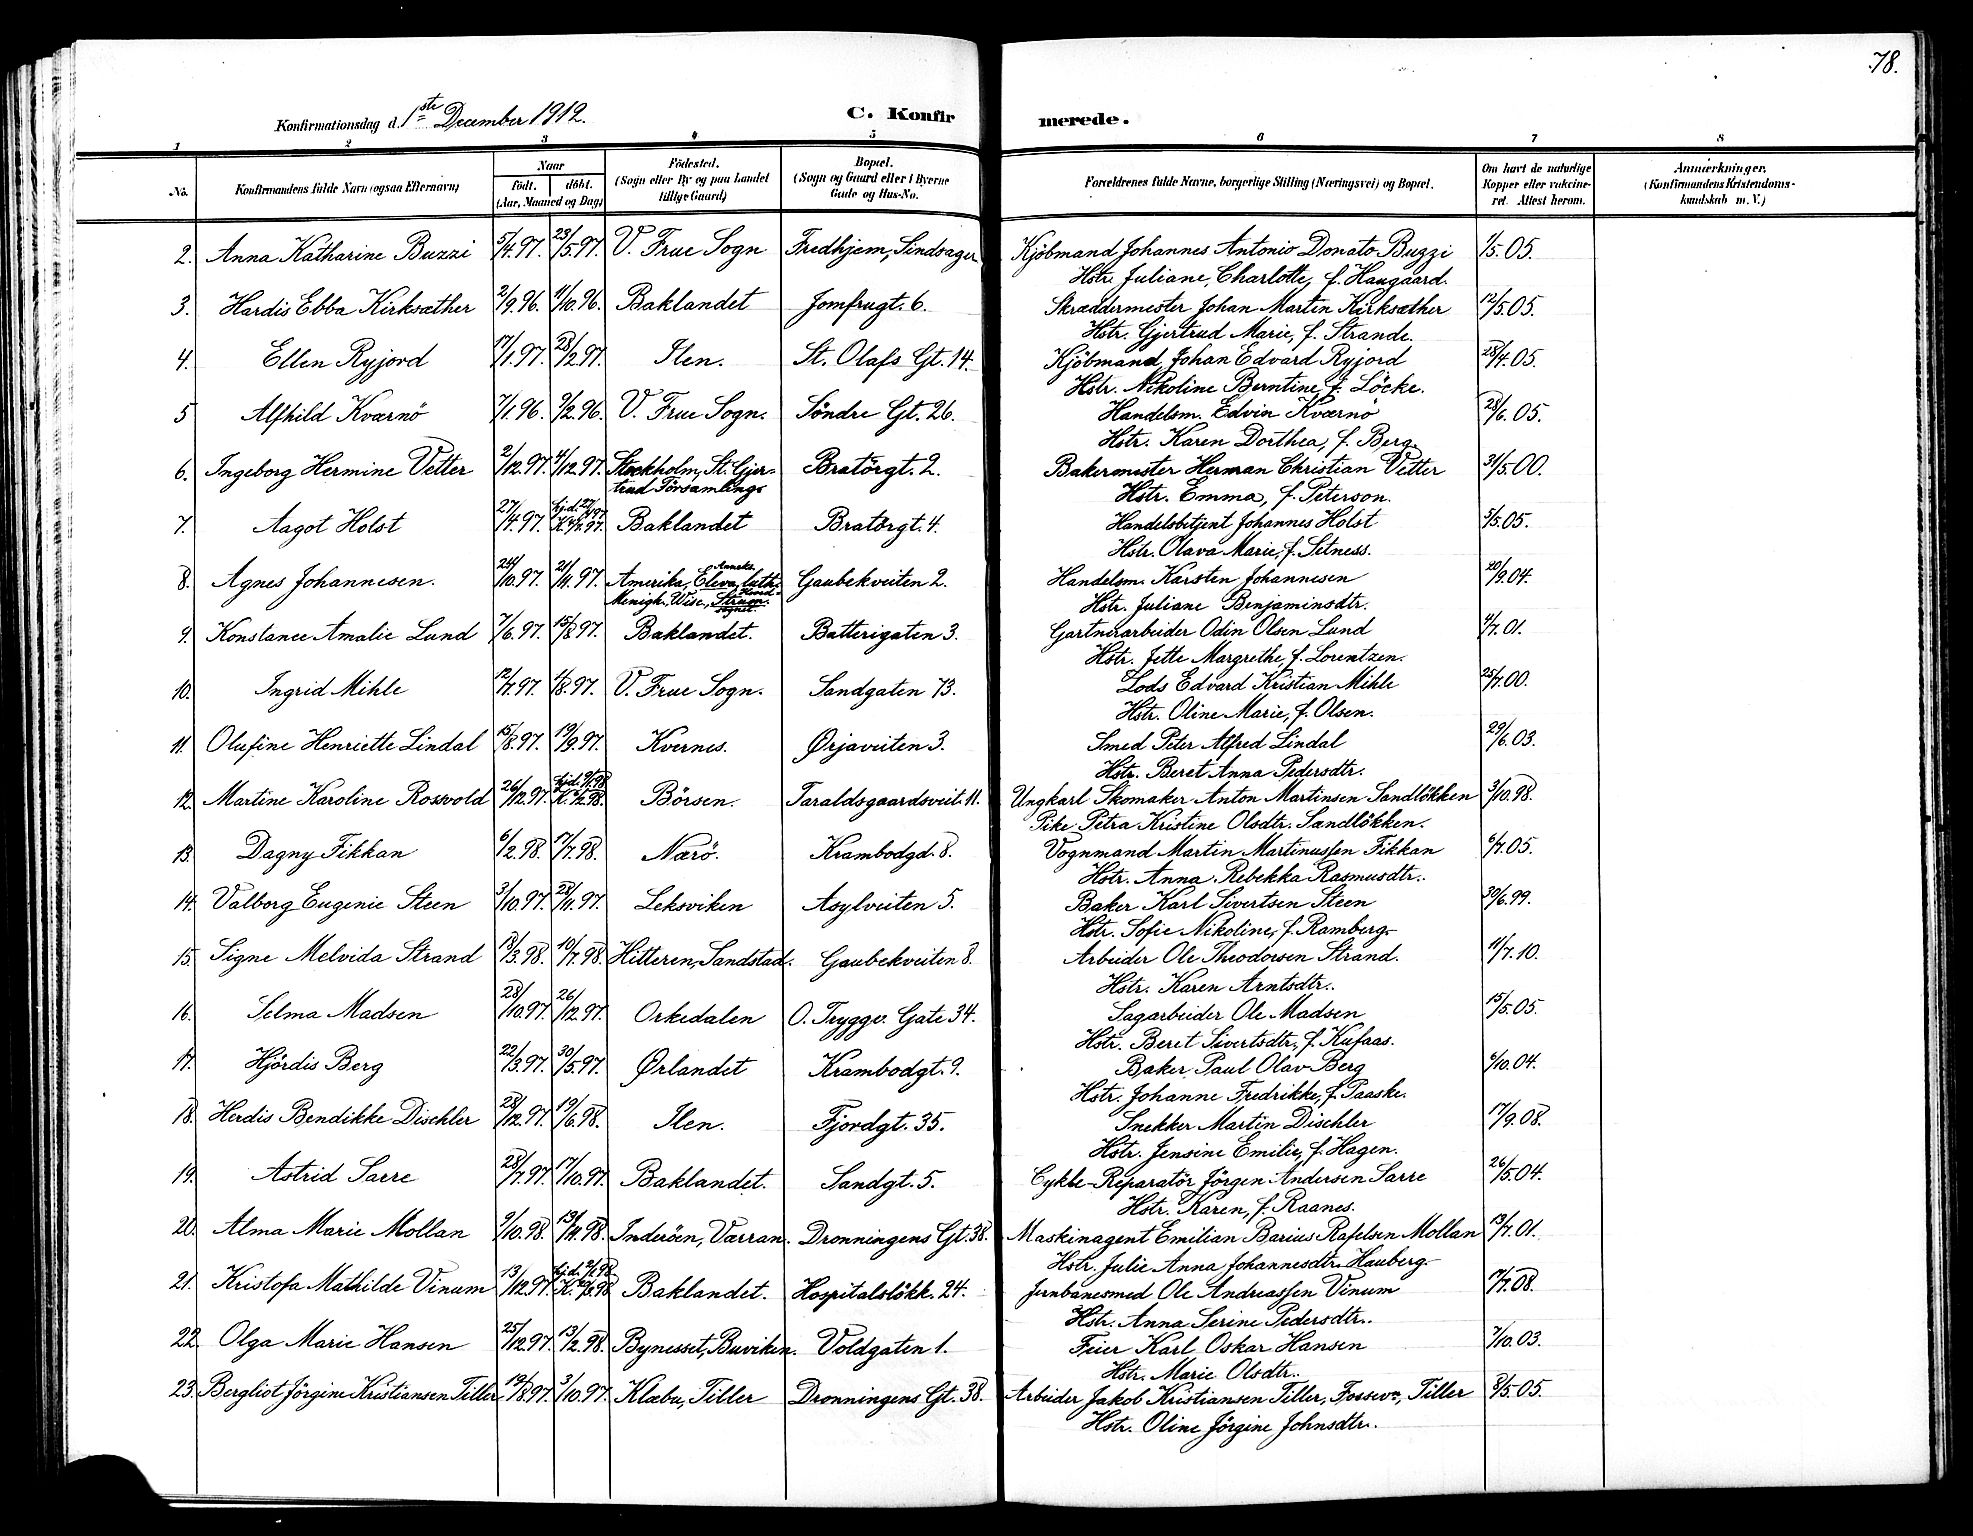 78.
Konfirmationsdag d. 1ste December 1912.
C. Konfirmerede.
1 2 3 4 5 6 7 8
No.
Konfirmandens fulde Navn (ogsaa Efternavn)
Naar
født. døbt.
(Aar, Maaned og Dag)
Fødested.
(Sogn eller By og paa Landet
tillige Gaard)
Bopæl.
(Sogn og Gaard eller i Byerne
Gade og Hus-No.
Forældrenes fulde Navne, borgerlige Stilling (Næringsvei) og Bopæl.
Om havt de naturlige
Kopper eller vakcine-
ret. Attest herom.
Anmærkninger.
(Konfirmandens Kristendoms-
kundskab m. V.)
2. Anna Katharine Buzzi 5/4.97. 23/5.97. V. Frue Sogn Fredhjem, Sindsager Kjöbmand Johannes Antonio Donato Buzzi 1/5.05.
Hstr. Juliane, Charlotte, f. Haugaard.
3. Hardis Ebba Kirksæther 2/9.96. 4/10.96. Baklandet Jomfrugt. 6. Skræddermester Johan Martin Kirksæther 12/5.05.
Hstr. Gjertrud Marie, f. Strande.
4. Ellen Ryjord 17/1.97. 28/2.97. Ilen. St. Olafs Gt. 14. Kjöbmand Johan Edvard Ryjord 28/4.05.
Hstr. Nikoline Berntine f. Löcke.
5 Alfhild Kværnö 7/1.96. 9/2.96. V. Frue Sogn. Söndre Gt. 26. Handelsm. Edvin Kværnö 28/6.05.
Hstr. Karen Dorthea, f. Berg.
6. Ingeborg Hermine Vetter 2/12.97. 4/12.97. Stockholm, St. Gjer- Bratörgt. 2. Bakermester Herman Christian Vetter 31/5.00.
trud Församlings Hstr. Emma, f. Peterson.
7. Aagot Holst 27/4.97. hjd. 27/4.97 Baklandet Bratörgt. 4. Handelsbetjent Johannes Holst 5/5.05.
Hstr. Olava Marie, f. Setness.
8. Agnes Johannesen. 24/10.97. 21/11.97. Amerika, Eleva, luth. Gaubekveiten 2. Handelsm. Karsten Johannesen 20/9.04.
Menigh., Wisc., Hstr. Juliane Benjaminsdtr.
9. Konstance Amalie Lund 7/6.97. 15/8.97. Baklandet. Batterigaten 3. Gartnerarbeider Odin Olsen Lund 4/7.01.
Hstr. Jette Margrethe, f. Lorentzen.
10. Ingrid Mihle 12/7.97. 1/8.97. V. Frue Sogn. Sandgaten 73. Lods Edvard Kristian Mihle 25/7.00.
Hstr. Oline Marie, f. Olsen.
11. Olufine Henriette Lindal 15/8.97. 19/9.97. Kvernes. Ørjaveiten 3. Smed Peter Alfred Lindal 29/6.03.
Hstr. Beret Anna Pedersdtr.
12. Martine Karoline Rosvold 26/12.97. Börsen. Taraldsgaardsveit. 11. Ungkarl Skomaker Anton Martinsen Sandlökken 3/10.98.
Pike Petra Kristine Olsdtr. Sandlökken.
13. Dagny Fikkan 6/2.98. 17/7.98. Nærö. Krambodgd. 8. Vognmand Martin Martinussen Fikkan 6/7.05.
Hstr. Anna Rebekka Rasmusdtr.
14. Valborg Eugenie Steen 3/10.97. 28/11.97. Leksviken Asylveiten 5. Baker Karl Sivertsen Steen 30/6.99.
Hstr. Sofie Nikoline, f. Ramberg.
15. Signe Melvida Strand 13/3.98. 10/7.98. Hitteren, Sandstad. Gaubekveiten 8. Arbeider Ole Theodorsen Strand. 11/7.10.
Hstr. Karen Arntsdtr.
16. Selma Madsen 28/10.97. 26/12.97. Orkedalen O. Tryggv. Gate 34. Sagarbeider Ole Madsen 15/5.05.
Hstr. Beret Sivertsdtr., f. Kufaas.
17. Hjördis Berg 22/3.97. 30/5.97. Ørlandet Krambodgt. 9. Baker Paul Olav Berg 6/10.04.
Hstr. Johanne Fredrikke, f. Paaske.
18. Herdis Bendikke Dischler 28/12.97. 19/6.98. Ilen. Fjordgt. 35. Snekker Martin Dischler 17/9.08.
Hstr. Jensine Emilie, f. Hagen.
19. Astrid Sarre 28/7.97. 17/10.97. Baklandet. Sandgt. 5. Cykle-Reparatör Jörgen Andersen Sarre 26/5.04.
Hstr. Karen, f. Raanes.
20. Alma Marie Mollan 9/10.98. 13/11.98. Inderöen, Værran. Dronningens Gt. 38. Maskinagent Emilian Barius Rafelsen Mollan 13/7.01.
Hstr. Julie Anna Johannesdtr. Hauberg.
21. Kristofa Mathilde Vinum 13/12.97. Baklandet. Hospitalslökk. 24. Jernbanesmed Ole Andreassen Vinum 17/7.08.
Hstr. Anna Serine Pedersdtr.
22. Olga Marie Hansen 25/12.97. 13/2.98. Bynesset, Buviken. Voldgaten 1. Feier Karl Oskar Hansen 7/10.03.
Hstr. Marie Olsdtr.
23. Bergliot Jörgine Kristiansen Tiller 19/8.97. 3/10.97. Klæbu, Tiller Dronningens Gt. 38. Arbeider Jakob Kristiansen Tiller, Tiller 8/5.05.
Hstr. Oline Jörgine Johnsdtr.